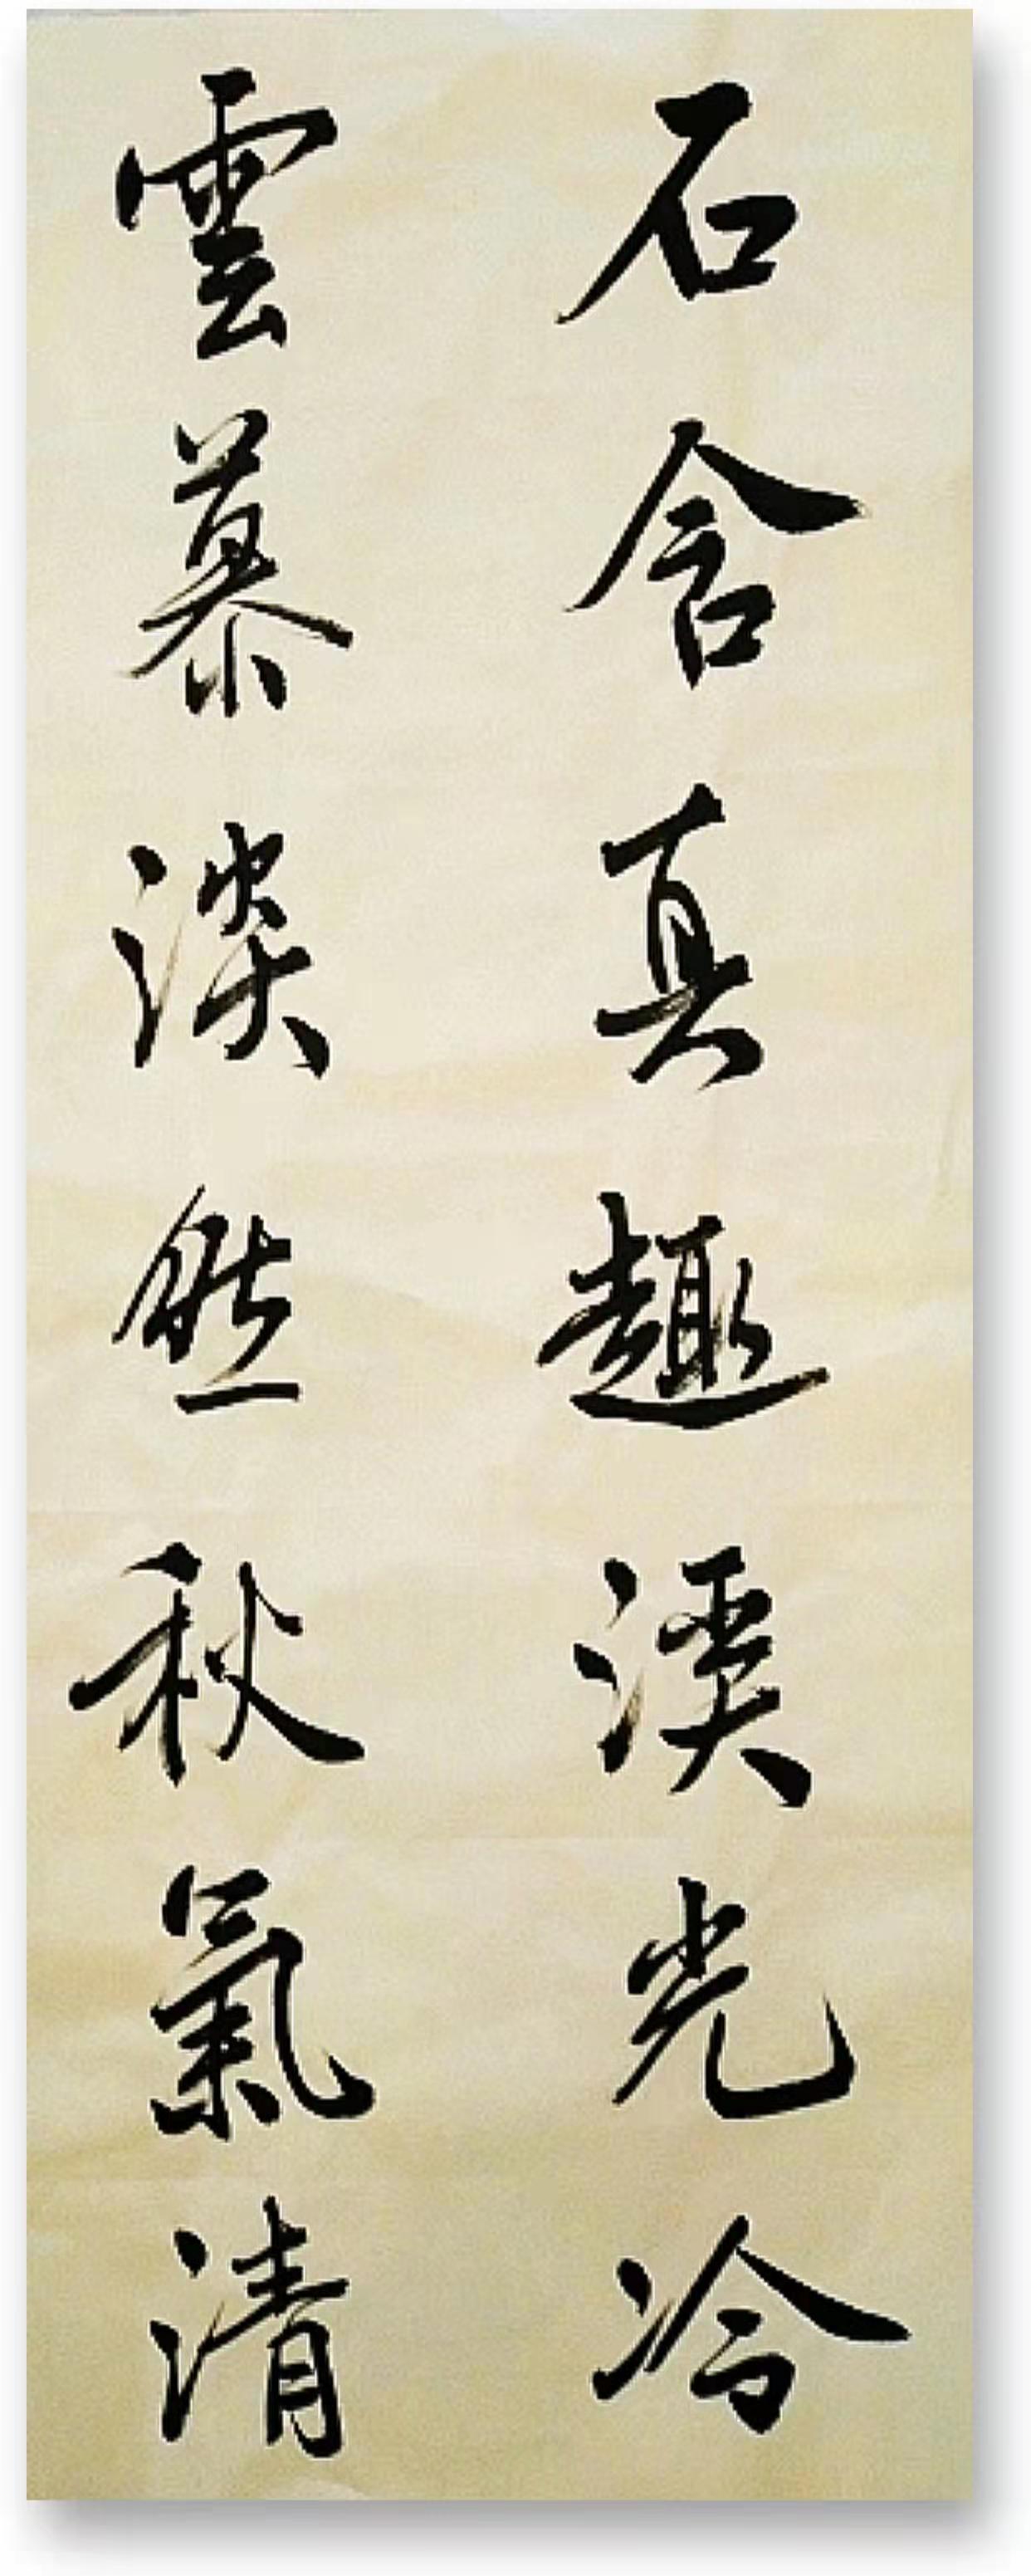 石含真趣溪光冷
雲慕淡然秋氣清